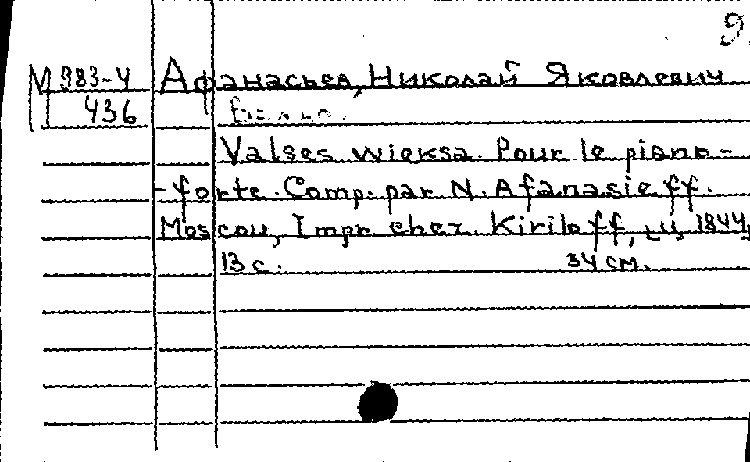 9
М 983-4 Афанасьев, Николай Яковлевич
436
Valses wieksa. Pour le piano-
-forte. Comp. par N. Afanasieff.
Moscou, Impr. chez Kiriloff, ц. ц. 1844,
13 с. 34 см.